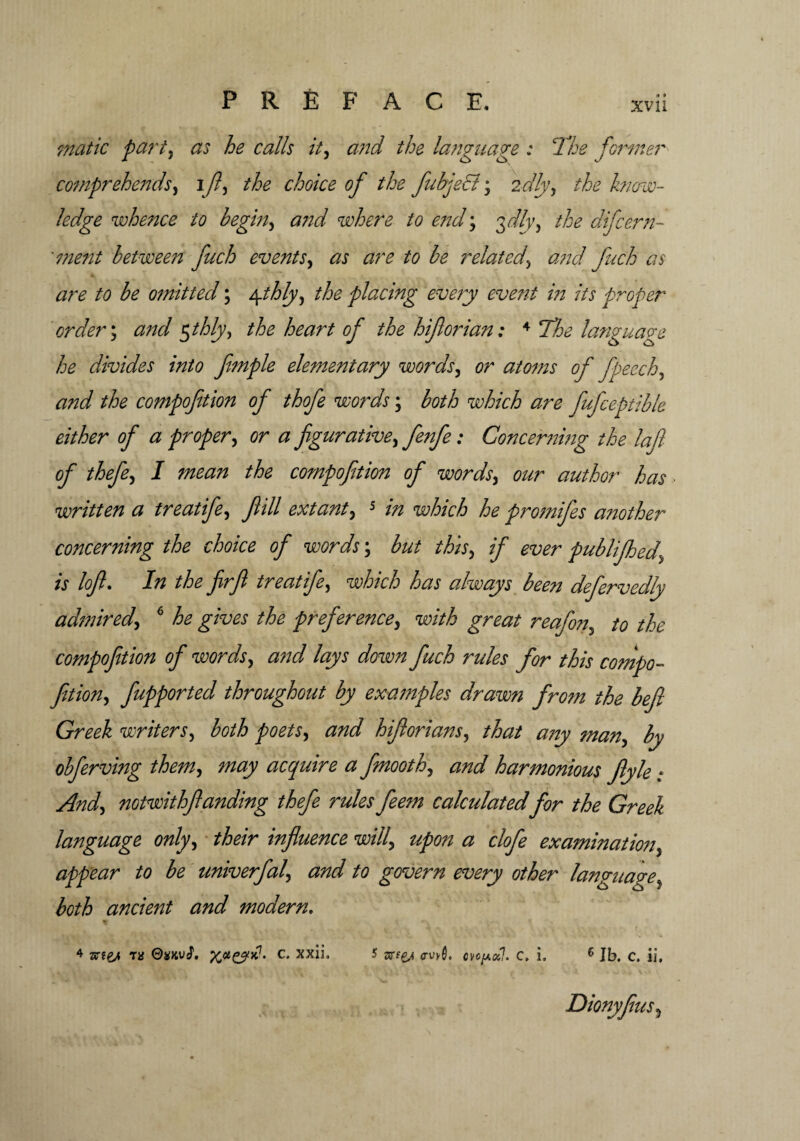 PREFACE. xvii
matic part, as he calls it, and the language : The former
comprehends, 1ſt, the choice of the ſubject ; 2dly, the know-
ledge whence to begin, and where to end ; 3dly, the diſcern-
ment between ſuch events, as are to be related, and ſuch as
are to be omitted ; 4thly, the placing every event in its proper
order ; and 5thly, the heart of the hiſtorian : ⁴ The language
he divides into ſimple elementary words, or atoms of ſpeech,
and the compoſition of thoſe words ; both which are ſuſceptible
either of a proper, or a figurative, ſenſe : Concerning the laſt
of theſe, I mean the compoſition of words, our author has
written a treatiſe, ſtill extant, ⁵ in which he promiſes another
concerning the choice of words ; but this, if ever publiſhed,
is loſt. In the firſt treatiſe, which has always been deſervedly
admired, ⁶ he gives the preference, with great reaſon, to the
compoſition of words, and lays down ſuch rules for this compo-
ſition, ſupported throughout by examples drawn from the beſt
Greek writers, both poets, and hiſtorians, that any man, by
obſerving them, may acquire a ſmooth, and harmonious ſtyle :
And, notwithſtanding theſe rules ſeem calculated for the Greek
language only, their influence will, upon a cloſe examination,
appear to be univerſal, and to govern every other language,
both ancient and modern.
⁴ περι τȣ Θȣκυδ. χαρακ]. c. xxii. ⁵ περι συνθ. ονομα]. c. i. ⁶ Ib. c. ii.
Dionyſius,